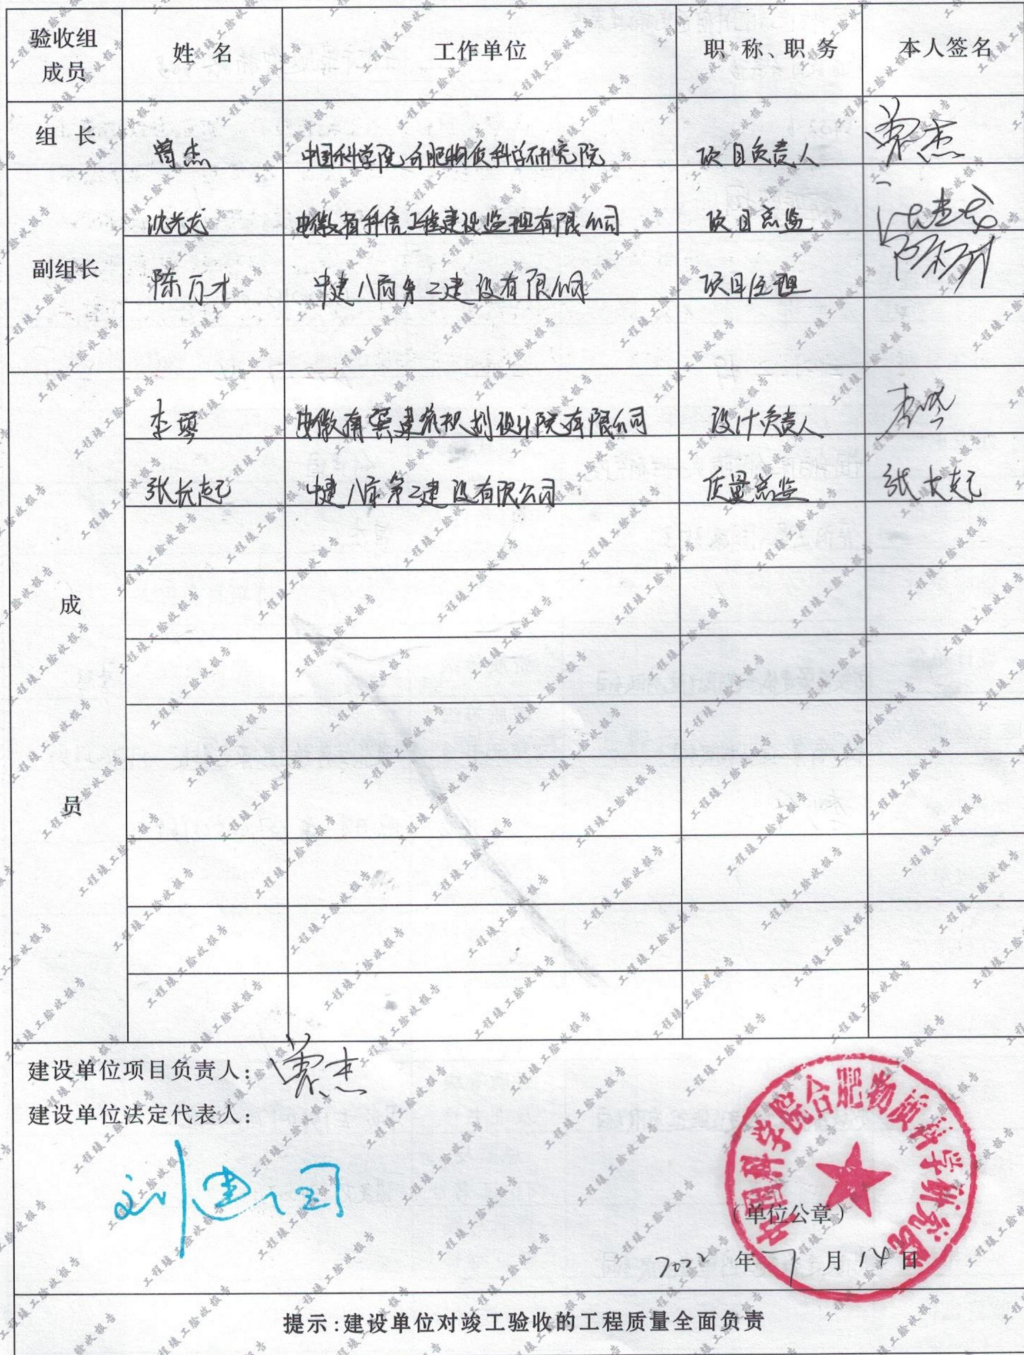 验收组成员 姓 名 工作单位 职 称、职 务 本人签名
组 长 曾杰 中国科学院合肥物质科学研究院 项目负责人 曾杰
沈光龙 安徽省科信工程建设监理有限公司 项目总监
副组长 陈万才 中建八局第二建设有限公司 项目经理
李琴 安徽省 建筑规划设计院有限公司 设计负责人
张长起 中建八局第二建设有限公司 质量总监 张长起
成
员
建设单位项目负责人: 曾杰
建设单位法定代表人:
刘建国
中国科学院合肥物质科学研究院
(单位公章)
2022 年 7 月 14 日
提示:建设单位对竣工验收的工程质量全面负责
工程竣工验收报告